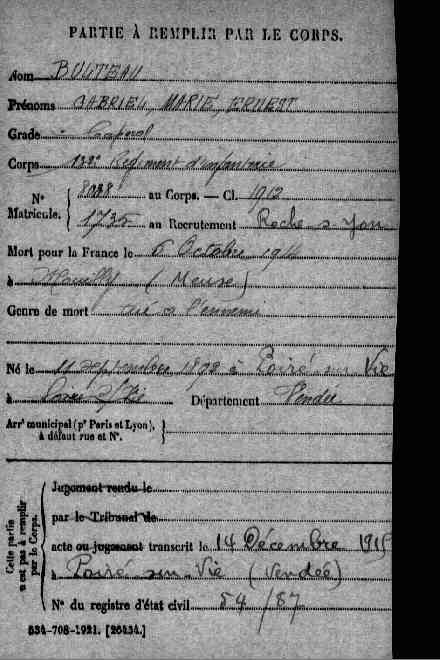 PARTIE À REMPLIR PAR LE CORPS.
Nom BULTEAU
Prénoms GABRIEL, MARIE, ERNEST
Grade Caporal
Corps 132e Régiment d'infanterie
N° Matricule. 8038 au Corps. — Cl. 1912
1735 au Recrutement Roche s-Yon
Mort pour la France le 5 Octobre 1914
à Mouilly (Meuse)
Genre de mort tué à l'ennemi
Né le 11 septembre 1892 à Poiré sur Vie
à Poiré s/Vie Département Vendée
Arrt municipal (pr Paris et Lyon),
à défaut rue et N°.
Cette partie n'est pas à remplir par le Corps.
Jugement rendu le
par le Tribunal de
acte ou jugement transcrit le 14 Décembre 1915
à Poiré-sur-Vie (Vendée)
N° du registre d'état civil 54/87
534-708-1921. [26434.]